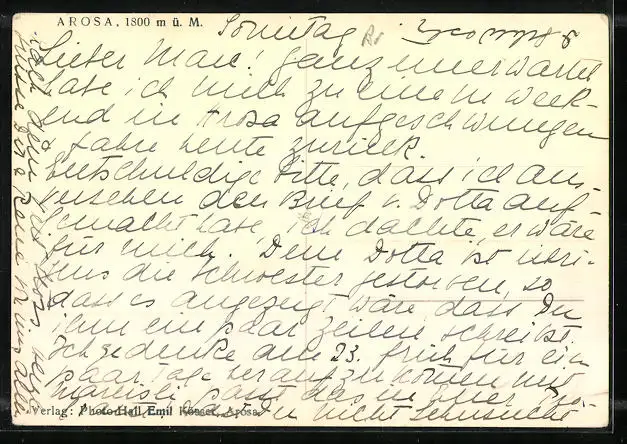 AROSA, 1800 m ü. M.
Sonntag
Lieber Marc! Ganz unerwartet
habe ich mich zu einem Week-
end in Arosa aufgeschwungen
& fahre heute zurück.
Entschuldige bitte, dass ich aus
versehen den Brief v. Dotta auf-
gemacht habe ich dachte, er wäre
für mich. Dem Dotta ist übri-
gens die Schwester gestorben, so
dass es angezeigt wäre dass Du
ihm ein paar Zeilen schreibst.
Ich gedenke am 23. früh für ein
paar Tage heraufzukommen mit
passt das in
Du nicht Sehnsucht
nach dem
Verlag: Photo-Hall Emil Rössel, Arosa.